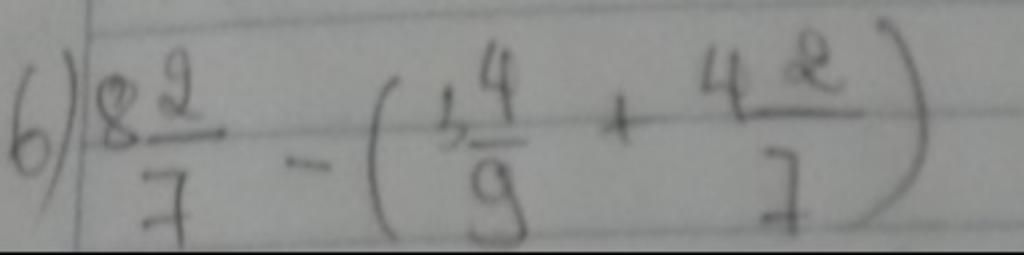 b) 8 2/7 - (3 4/9 + 4 2/7)